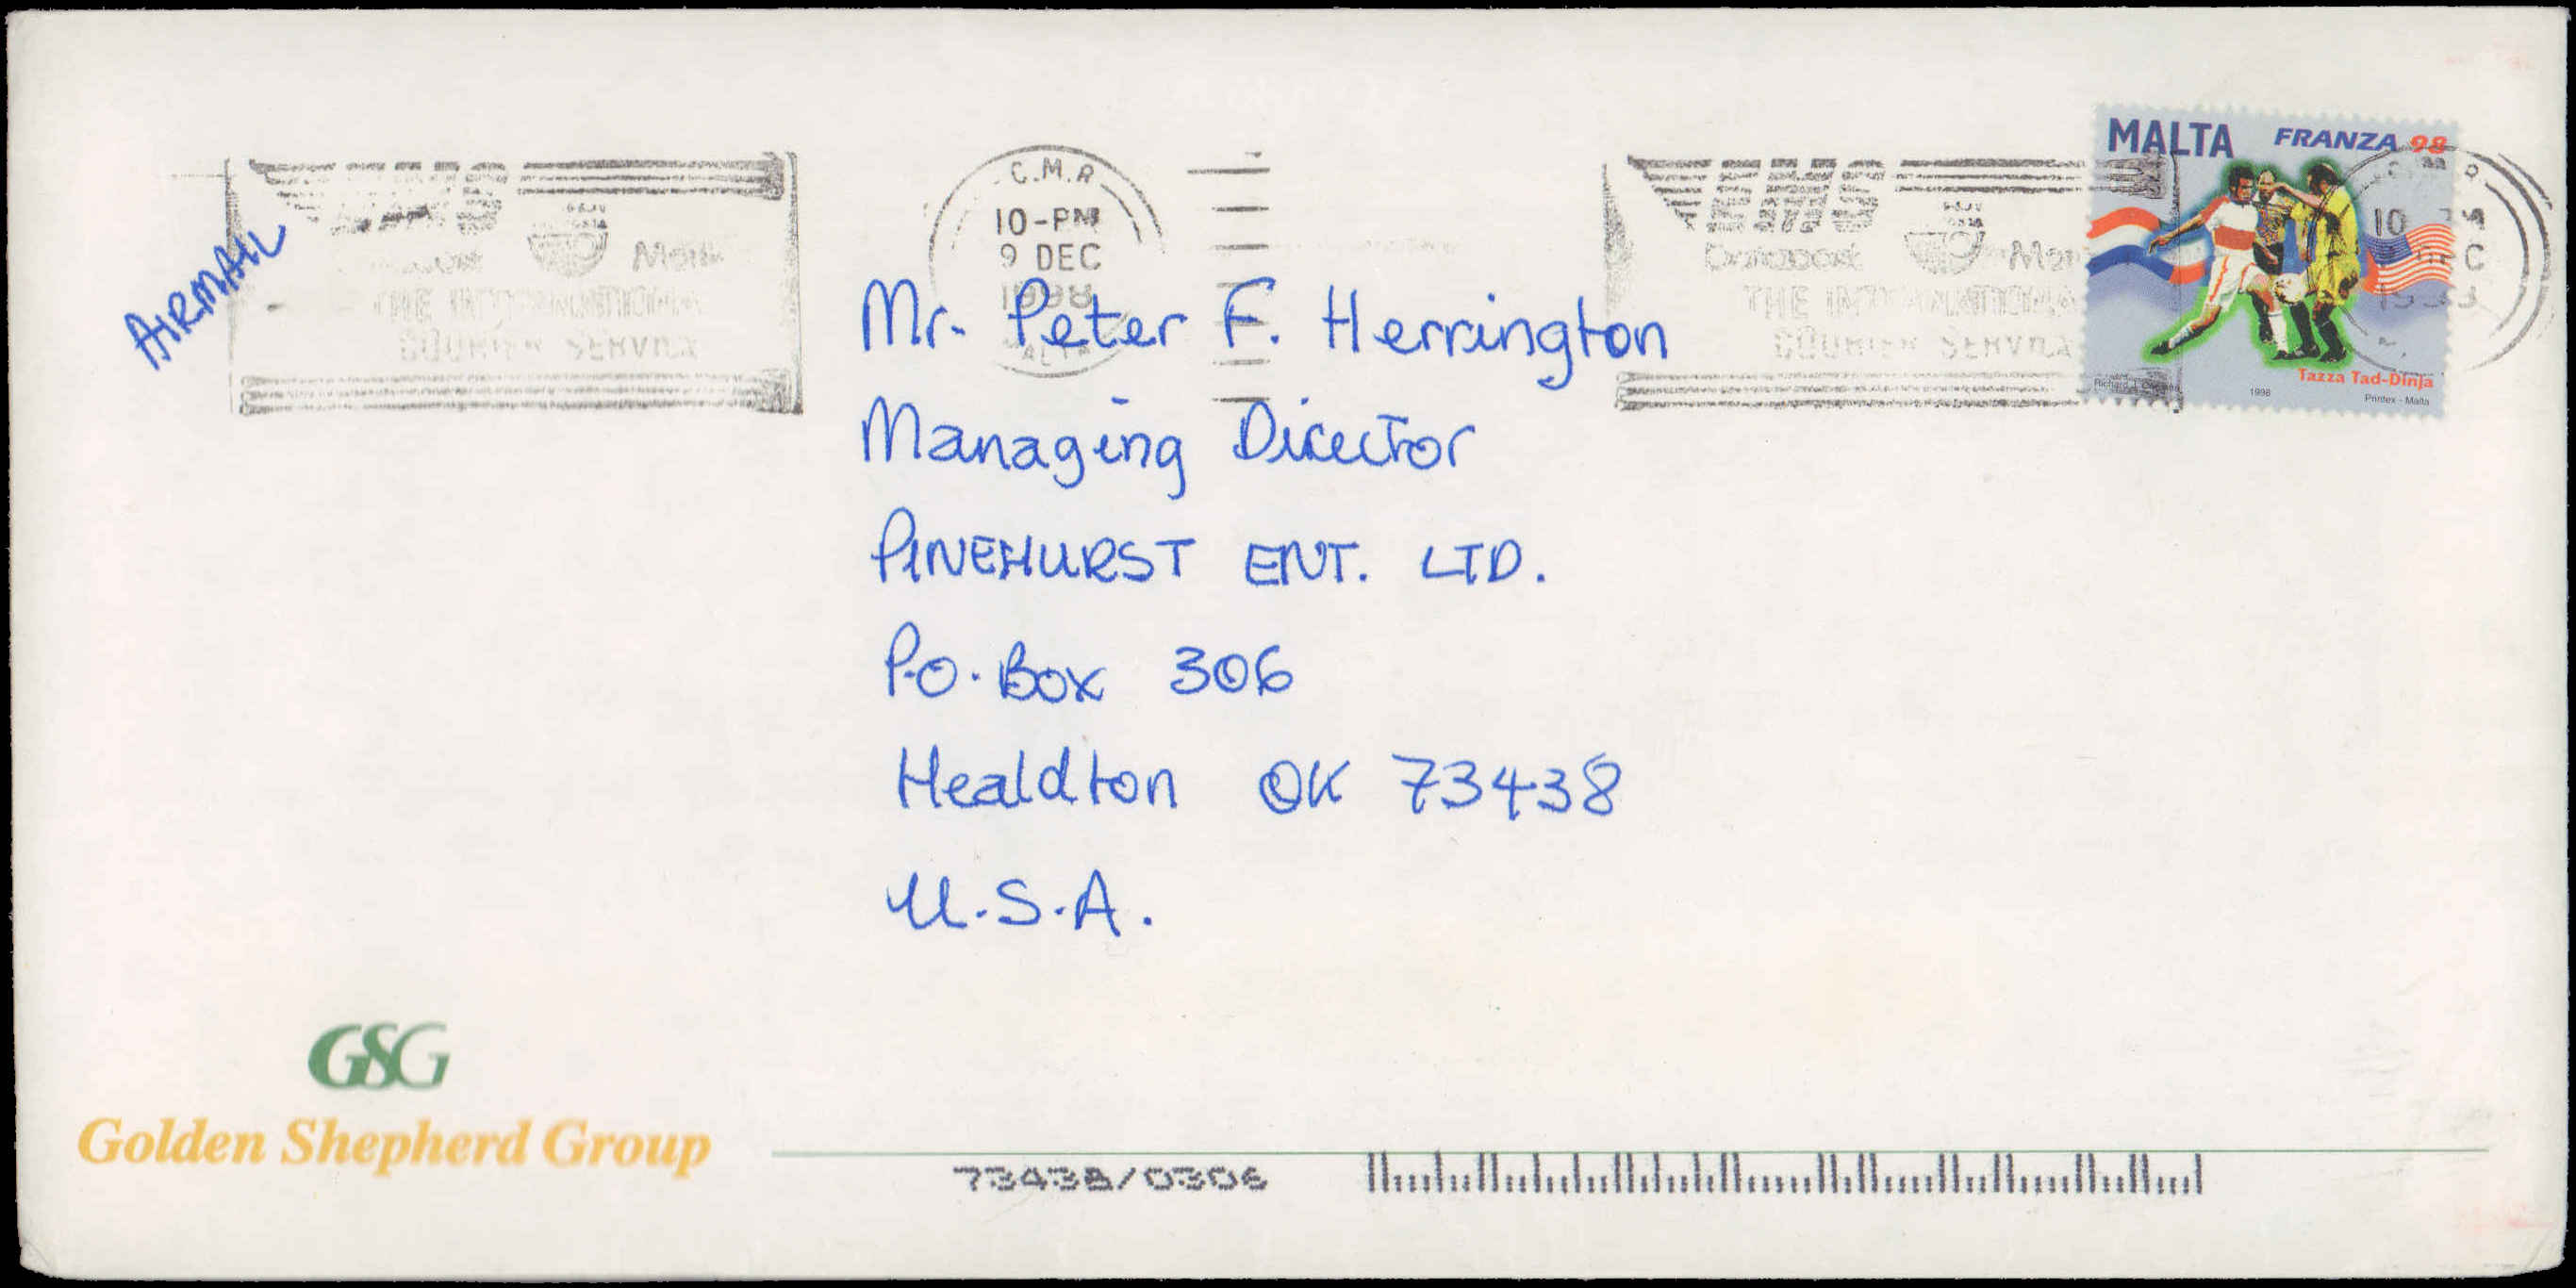 AIRMAIL
C.M.R
10-PM
9 DEC
1998
EMS
THE INTERNATIONAL
COURIER SERVICE
MALTA FRANZA 98
Tazza Tad-Dinja
1998
Printex - Malta
Mr. Peter F. Herrington
Managing Director
PINEHURST ENT. LTD.
P.O. Box 306
Healdton OK 73438
U.S.A.
GSG
Golden Shepherd Group
73438/0306